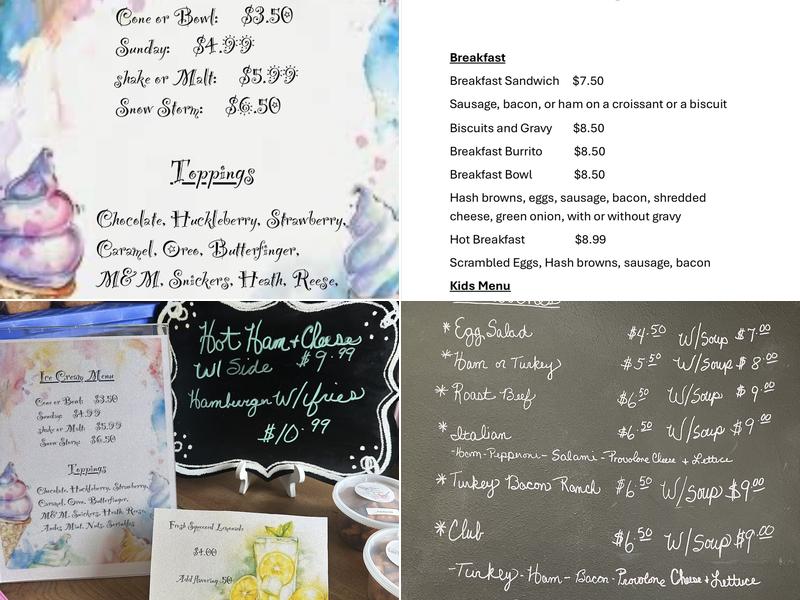 Cone or Bowl: $3.50
Sunday: $4.99
shake or Malt: $5.99
Snow Storm: $6.50
Toppings
Chocolate, Huckleberry, Strawberry,
Caramel, Oreo, Butterfinger,
M&M, Snickers, Heath, Reese,
Breakfast
Breakfast Sandwich $7.50
Sausage, bacon, or ham on a croissant or a biscuit
Biscuits and Gravy $8.50
Breakfast Burrito $8.50
Breakfast Bowl $8.50
Hash browns, eggs, sausage, bacon, shredded
cheese, green onion, with or without gravy
Hot Breakfast $8.99
Scrambled Eggs, Hash browns, sausage, bacon
Kids Menu
Ice Cream Menu
Cone or Bowl: $3.50
Sunday: $4.99
shake or Malt: $5.99
Snow Storm: $6.50
Toppings
Chocolate, Huckleberry, Strawberry,
Caramel, Oreo, Butterfinger,
M&M, Snickers, Heath, Reese,
Andes Mint, Nuts, Sprinkles
Hot Ham + Cheese
W/ Side $9.99
Hamburger W/ fries
$10.99
Fresh Squeezed Lemonade
$4.00
Add flavoring .50
* Egg Salad $4.50 W/Soup $7.00
* Ham or Turkey $5.50 W/Soup $8.00
* Roast Beef $6.50 W/Soup $9.00
* Italian $6.50 W/Soup $9.00
-Ham-Pepperoni-Salami-Provolone Cheese + Lettuce
* Turkey Bacon Ranch $6.50 W/Soup $9.00
* Club $6.50 W/Soup $9.00
-Turkey-Ham-Bacon-Provolone Cheese + Lettuce